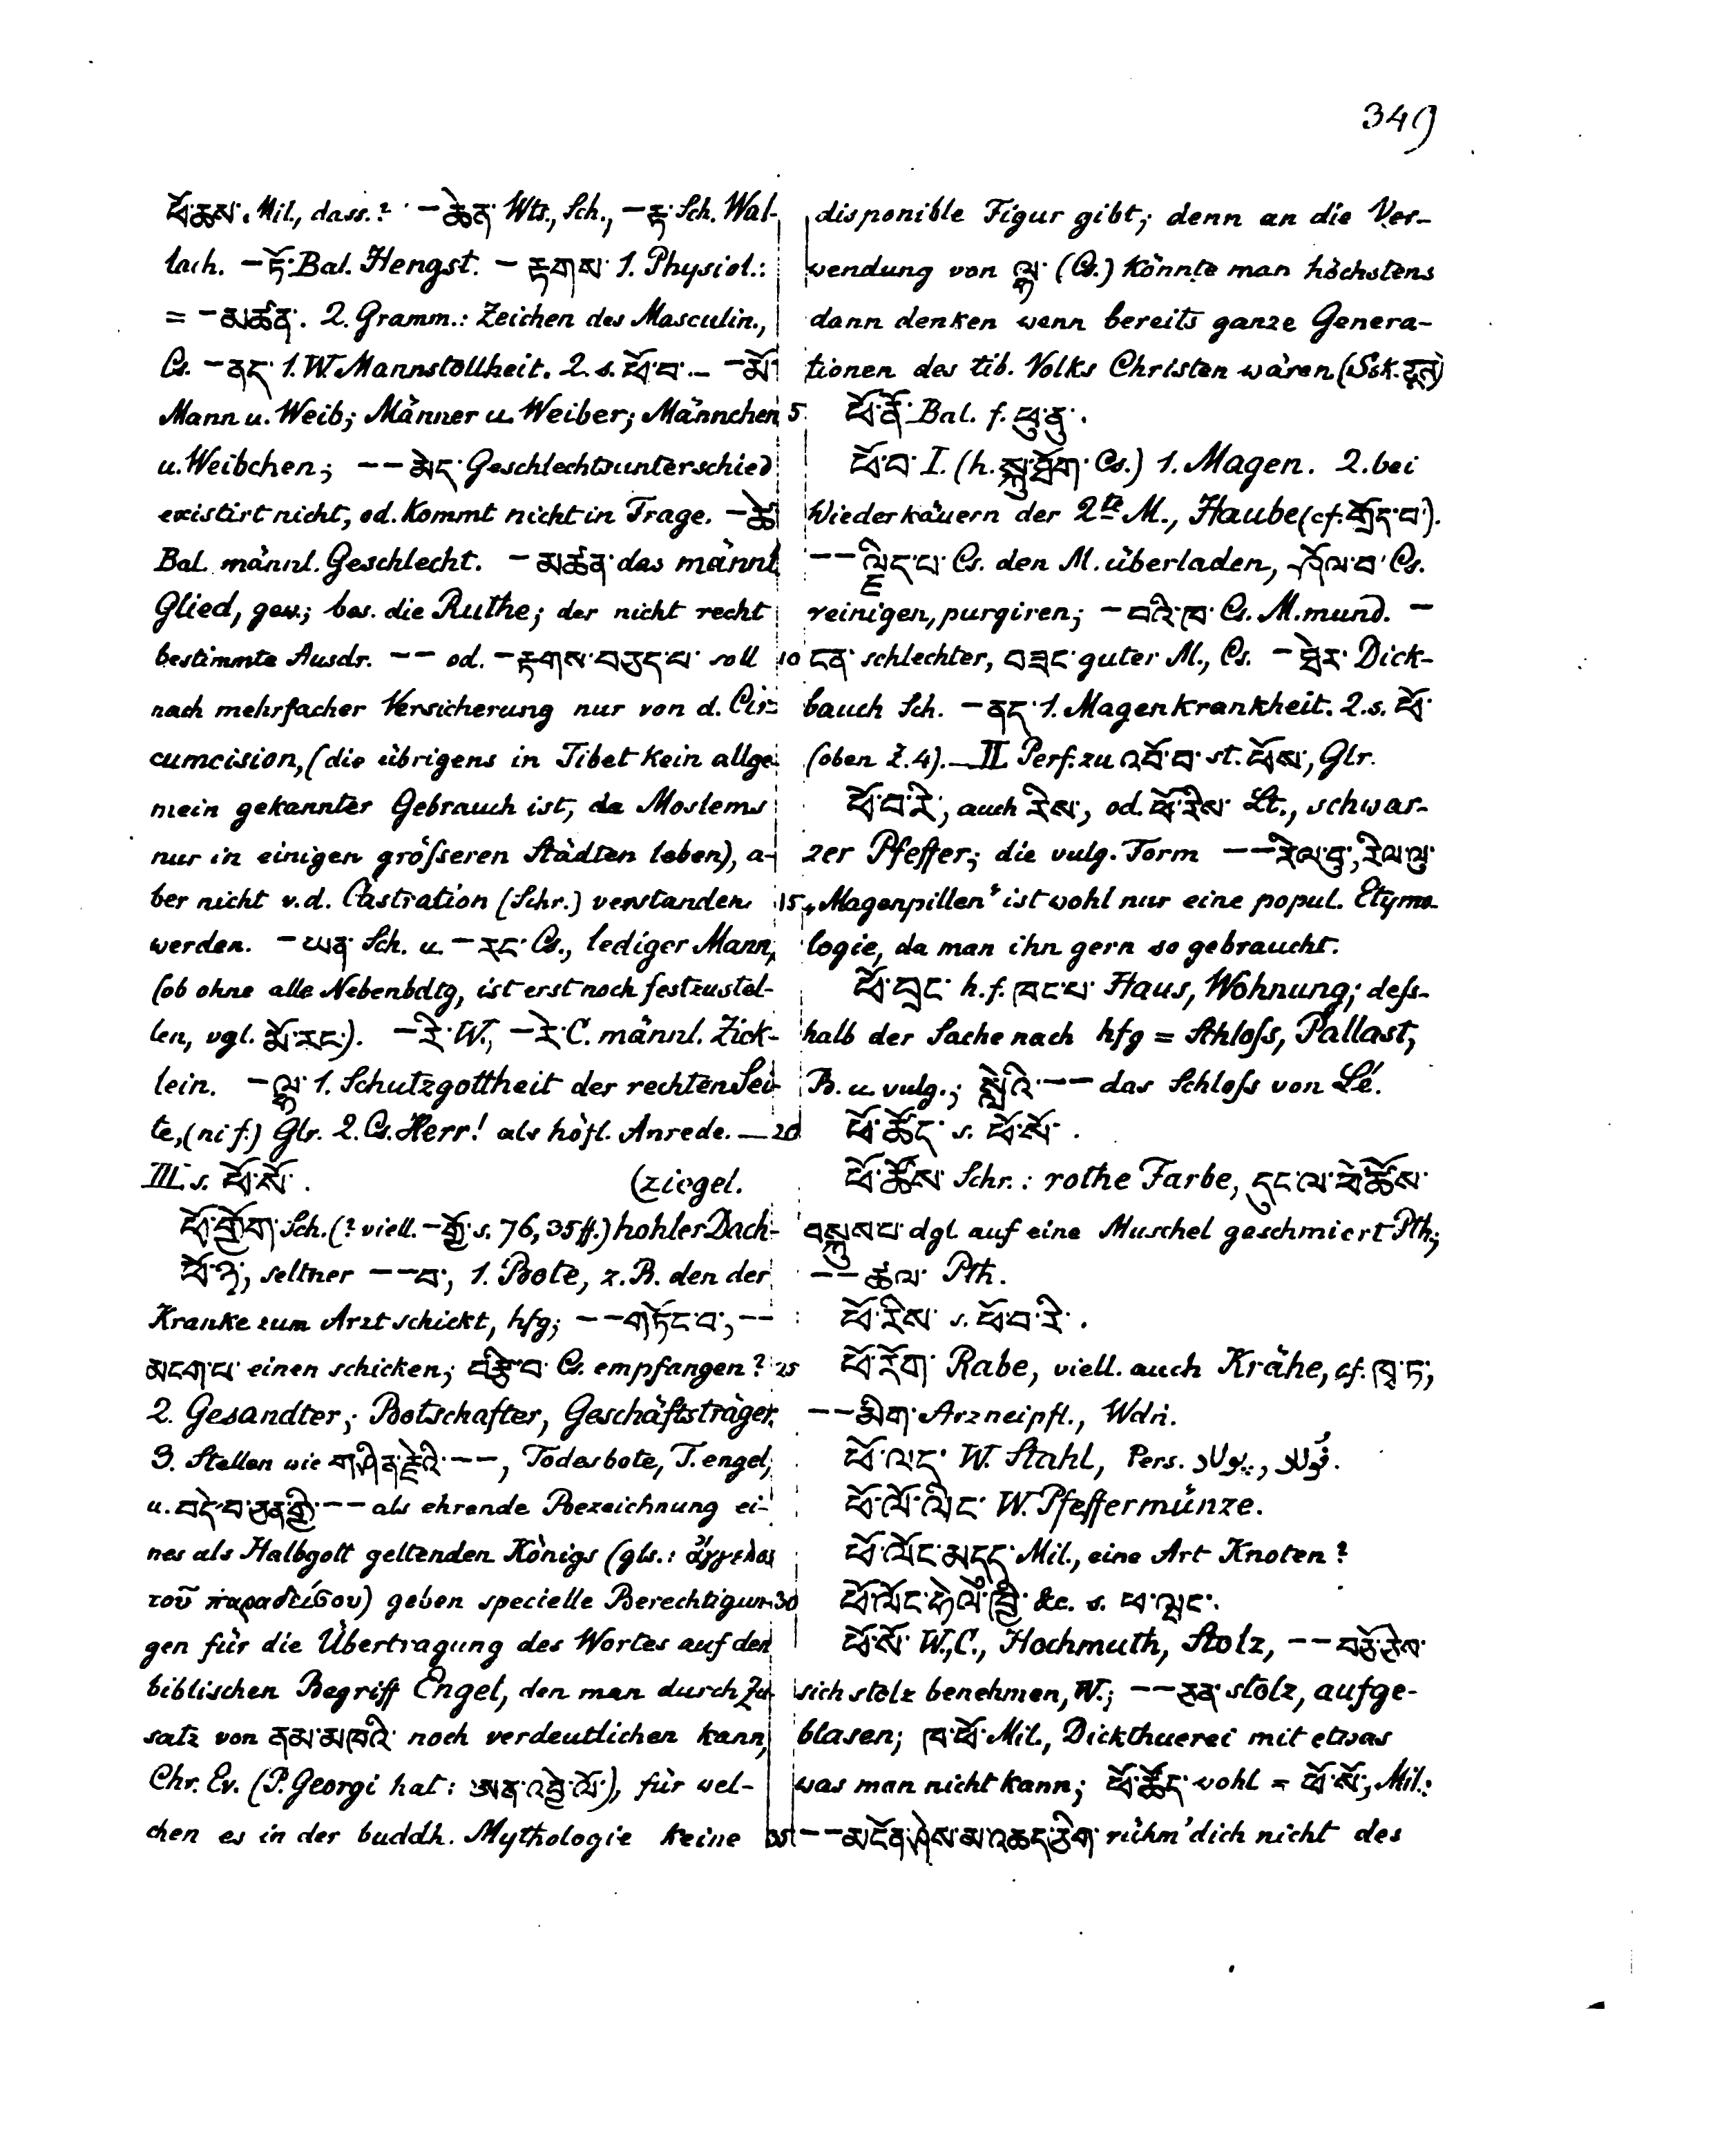 349
ཕོ་ཆས་ Mil., dass.? – ཆེན་ Wts., Sch., – རྟ་ Sch. Wal-
lach. – ཏོ་ Bal. Hengst. – རྟགས་ 1. Physiol.:
= – མཚན་. 2. Gramm.: Zeichen des Masculin.,
Cs. – ནད་ 1. W. Mannstollheit. 2. s. ཕོ་བ་ — – མོ་
Mann u. Weib; Männer u. Weiber; Männchen
u. Weibchen; – – མེད་ Geschlechtsunterschied
existirt nicht, od. kommt nicht in Frage. – ཚེ་
Bal. männl. Geschlecht. – མཚན་ das männl.
Glied, gew.; bes. die Ruthe; der nicht recht
bestimmte Ausdr. – – od. – རྟགས་བཅད་པ་ soll
nach mehrfacher Versicherung nur von d. Cir-
cumcision, (die übrigens in Tibet kein allge-
mein gekannter Gebrauch ist, da Moslems
nur in einigen größeren Städten leben), a-
ber nicht v. d. Castration (Schr.) verstanden
werden. – ཡན་ Sch. u. – རང་ Cs., lediger Mann,
(ob ohne alle Nebenbdtg, ist erst noch festzustel-
len, vgl. མོ་རང་). – རི་ W., – རེ་ C. männl. Zick-
lein. – ལྷ་ 1. Schutzgottheit der rechten Sei-
te, (ni f.) Glr. 2. Cs. Herr! als höfl. Anrede. —
III. s. ཕོ་སོ་ . (ziegel.
ཕོ་གྲོག་ Sch. (? viell. – རྒྱ་ s. 76, 35 ff.) hohler Dach-
ཕོ་ཉ་, seltner – – བ་, 1. Bote, z. B. den der
Kranke zum Arzt schickt, hfg; – – གཏོང་བ་, – –
མངག་པ་ einen schicken; བརྩི་བ་ Cs. empfangen?
2. Gesandter, Botschafter, Geschäftsträger.
3. Stellen wie གཤིན་རྗེའི་ – –, Todesbote, T. engel,
u. བདེ་བ་ཅན་གྱི་ – – als ehrende Bezeichnung ei-
nes als Halbgott geltenden Königs (gls.: ἄγγελοι
τοῦ παραδείσου) geben specielle Berechtigun-
gen für die Übertragung des Wortes auf den
biblischen Begriff Engel, den man durch Zu-
satz von ནམ་མཁའི་ noch verdeutlichen kann,
Chr. Ev. (P. Georgi hat: ཨན་འཇེ་ལོ་), für wel-
chen es in der buddh. Mythologie keine
disponible Figur gibt; denn an die Ver-
wendung von ལྷ་ (Cs.) könnte man höchstens
dann denken wenn bereits ganze Genera-
tionen des tib. Volks Christen wären (Ssk.)
5 ཕོ་ནོ་ Bal. f. ཕུ་ནུ་ .
ཕོ་བ་ I. (h. སྐུ་ཕྲོག་ Cs.) 1. Magen. 2. bei
Wiederkäuern der 2te M., Haube (cf. གྲོད་པ་).
– – ལྗིད་པ་ Cs. den M. überladen, ཤོལ་བ་ Cs.
reinigen, purgiren; – བའི་ཁ་ Cs. M. mund. –
10 ངན་ schlechter, བཟང་ guter M., Cs. – ཐེར་ Dick-
bauch Sch. – ནད་ 1. Magenkrankheit. 2. s. ཕོ་
(oben Z. 4). — II. Perf. zu འབོ་བ་ st. ཕོས་, Glr.
ཕོ་བ་རི་, auch རིས་, od. ཕོ་རིས་ Lt., schwar-
zer Pfeffer; die vulg. Form – – རིལ་བུ་, རིལ་ལུ་
15 „Magenpillen“ ist wohl nur eine popul. Etymo-
logie, da man ihn gern so gebraucht.
ཕོ་བྲང་ h. f. ཁང་པ་ Haus, Wohnung; deß-
halb der Sache nach hfg = Schloß, Pallast,
B. u. vulg.; སླེའི་ – – das Schloß von Lé.
20 ཕོ་ཚོད་ s. ཕོ་སོ་ .
ཕོ་ཚོས་ Schr.: rothe Farbe, དུང་ལ་ཕོ་ཚོས་
བསྐུས་པ་ dgl. auf eine Muschel geschmiert Pth.;
– – ཚལ་ Pth.
ཕོ་རིས་ s. ཕོ་བ་རི་ .
25 ཕོ་རོག་ Rabe, viell. auch Krähe, cf. ཁྭ་ཏ་,
– – མིག་ Arzneipfl., Wdn.
ཕོ་ལད་ W. Stahl, Pers. پولاد, فولاد.
ཕོ་ལོ་ལིང་ W. Pfeffermünze.
ཕོ་ལོང་མདུད་ Mil., eine Art Knoten?
30 &c. s. ཕ་ལྨང་.
ཕོ་སོ་ W., C., Hochmuth, Stolz, – – བཅོ་ཅེས་
sich stolz benehmen, W.; – – ཅན་ stolz, aufge-
blasen; ཁ་ཕོ་ Mil., Dickthuerei mit etwas
was man nicht kann; ཕོ་ཚོད་ wohl = ཕོ་སོ་, Mil.:
35 – – མངོན་ཤེས་མ་འཆད་ཅིག་ rühm' dich nicht des